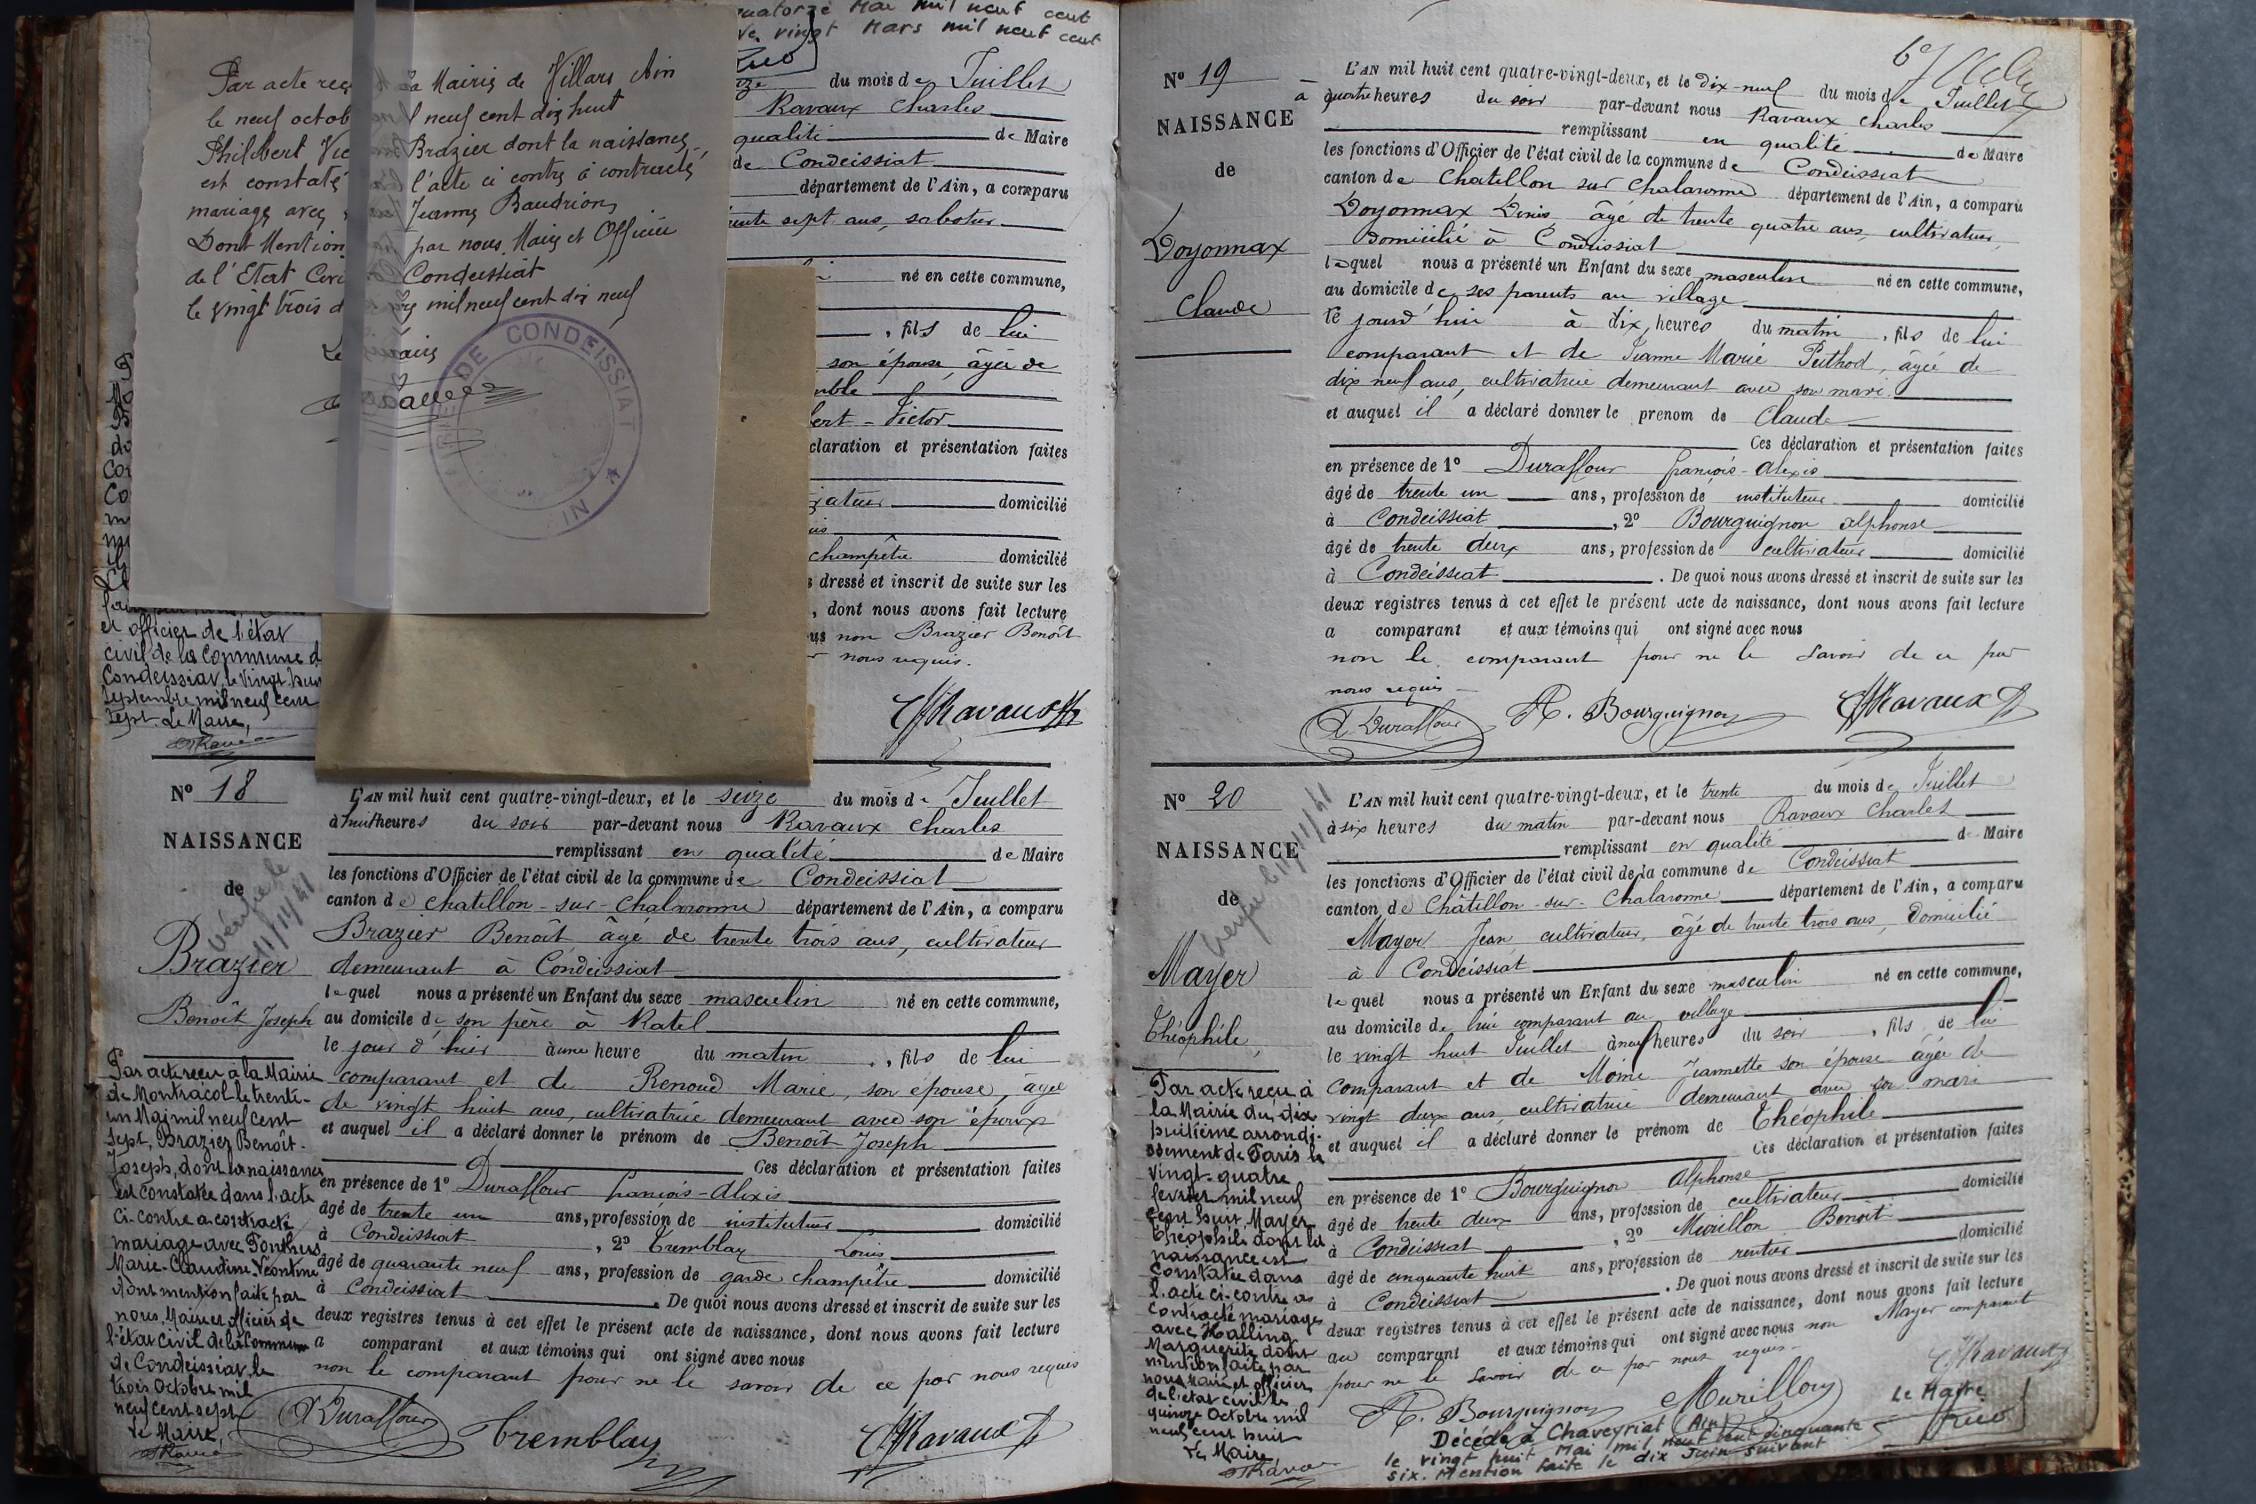 Par acte reçu à la Mairie de Villars Ain
le neuf octob l neuf cent dix huit
Philibert Vic Brazier dont la naissance
est constaté l'acte ci contre à contracté
mariage avec Jeanne Baudrion
Dont Mention par nous, Maire et Officier
de l'Etat Civi Condeissiat
le vingt trois d mil neuf cent dix neuf
MAIRIE DE CONDEISSIAT
AIN
et officier de l'état
civil de la Commune d
Condeissiat, le vingt-huit
septembre mil neuf cent
sept. Le Maire,
uatorze Mai mil neuf cent
vingt Mars mil neuf cent
du mois de Juillet
Ravaux Charles
qualité de Maire
de Condeissiat
département de l'Ain, a comparu
ente sept ans, sabotier
né en cette commune,
, fils de lui
son épouse, âgée de
emble
bert - Victor
claration et présentation faites
domicilié
champêtre domicilié
s dressé et inscrit de suite sur les
, dont nous avons fait lecture
us non Brazier Benoît
nous requis.
CRavaux
N° 18
NAISSANCE
de
Brazier
Benoît Joseph
Vérifié le
11/11/41
Par acte reçu à la Mairie
de Montracol le trente-
un Mai mil neuf cent
sept, Brazier Benoît-
Joseph, dont la naissance
est constatée dans l'acte
ci-contre a contracté
mariage avec
Marie-Claudine-Léontine
dont mention faite par
nous, Maire et officier de
l'état civil de la Commune
de Condeissiat, le
trois Octobre mil
neuf cent sept
Le Maire,
L'AN mil huit cent quatre-vingt-deux, et le seize du mois de Juillet
à huit heures du soir par-devant nous Ravaux Charles
remplissant en qualité de Maire
les fonctions d'Officier de l'état civil de la commune de Condeissiat
canton de Chatillon-sur-Chalaronne département de l'Ain, a comparu
Brazier Benoît âgé de trente trois ans, cultivateur
demeurant à Condeissiat
lequel nous a présenté un Enfant du sexe masculin né en cette commune,
au domicile de son père à Ratel
le jour d'hier à une heure du matin, fils de lui
comparant et de Renoud Marie, son épouse, âgée
de vingt huit ans, cultivatrice demeurant avec son époux
et auquel il a déclaré donner le prénom de Benoît Joseph
Ces déclaration et présentation faites
en présence de 1° Duraffour françois-Alexis
âgé de trente un ans, profession de instituteur domicilié
à Condeissiat, 2° Tremblay Louis
âgé de quarante neuf ans, profession de garde champêtre domicilié
à Condeissiat. De quoi nous avons dressé et inscrit de suite sur les
deux registres tenus à cet effet le présent acte de naissance, dont nous avons fait lecture
a comparant et aux témoins qui ont signé avec nous
non le comparant pour ne le savoir de ce par nous requis
A Duraffour Tremblay CRavaux
N° 19
NAISSANCE
de
Doyonnax
Claude
L'AN mil huit cent quatre-vingt-deux, et le dix-neuf du mois de Juillet
à quatre heures du soir par-devant nous Ravaux Charles
remplissant en qualité de Maire
les fonctions d'Officier de l'état civil de la commune de Condeissiat
canton de Chatillon sur Chalaronne département de l'Ain, a comparu
Doyonnax Denis âgé de trente quatre ans, cultivateur,
domicilié à Condeissiat
lequel nous a présenté un Enfant du sexe masculin né en cette commune,
au domicile de ses parents au village
ce jourd'hui à dix heures du matin, fils de lui
comparant et de Jeanne Marie Puthod, âgée de
dix neuf ans, cultivatrice demeurant avec son mari
et auquel il a déclaré donner le prénom de Claude
Ces déclaration et présentation faites
en présence de 1° Duraffour françois-Alexis
âgé de trente un ans, profession de instituteur domicilié
à Condeissiat, 2° Bourguignon Alphonse
âgé de trente deux ans, profession de cultivateur domicilié
à Condeissiat. De quoi nous avons dressé et inscrit de suite sur les
deux registres tenus à cet effet le présent acte de naissance, dont nous avons fait lecture
a comparant et aux témoins qui ont signé avec nous
non le comparant pour ne le savoir de ce par
nous requis
A Duraffour A. Bourguignon CRavaux
N° 20
NAISSANCE
de
Mayer
Théophile
Vérifié le 11/11/41
Par acte reçu à
la Mairie du dix
huitième arrondi-
ssement de Paris le
vingt-quatre
février mil neuf
cent huit, Mayer
Théophile dont la
naissance est
constatée dans
l'acte ci-contre a
contracté mariage
avec Halling
Marguerite dont
mention faite par
nous Maire et officier
de l'état civil le
quinze Octobre mil
neuf cent huit
Le Maire,
L'AN mil huit cent quatre-vingt-deux, et le trente du mois de Juillet
à six heures du matin par-devant nous Ravaux Charles
remplissant en qualité de Maire
les fonctions d'Officier de l'état civil de la commune de Condeissiat
canton de Châtillon-sur-Chalaronne département de l'Ain, a comparu
Mayer Jean cultivateur, âgé de trente trois ans, domicilié
à Condeissiat
lequel nous a présenté un Enfant du sexe masculin né en cette commune,
au domicile de lui comparant au village
le vingt huit Juillet à neuf heures du soir, fils de lui
comparant et de Moine Jeannette son épouse âgée de
vingt deux ans, cultivatrice demeurant avec son mari
et auquel il a déclaré donner le prénom de Théophile
Ces déclaration et présentation faites
en présence de 1° Bourguignon Alphonse
âgé de trente deux ans, profession de cultivateur domicilié
à Condeissiat, 2° Murillon Benoit
âgé de cinquante huit ans, profession de rentier domicilié
à Condeissiat. De quoi nous avons dressé et inscrit de suite sur les
deux registres tenus à cet effet le présent acte de naissance, dont nous avons fait lecture
au comparant et aux témoins qui ont signé avec nous non Mayer comparant
pour ne le savoir de ce par nous requis.
A. Bourguignon Murillon CRavaux
Décédé à Chaveyriat (Ain) Le Maire
le vingt huit Mai mil neuf cent cinquante
six. Mention faite le dix Juin suivant